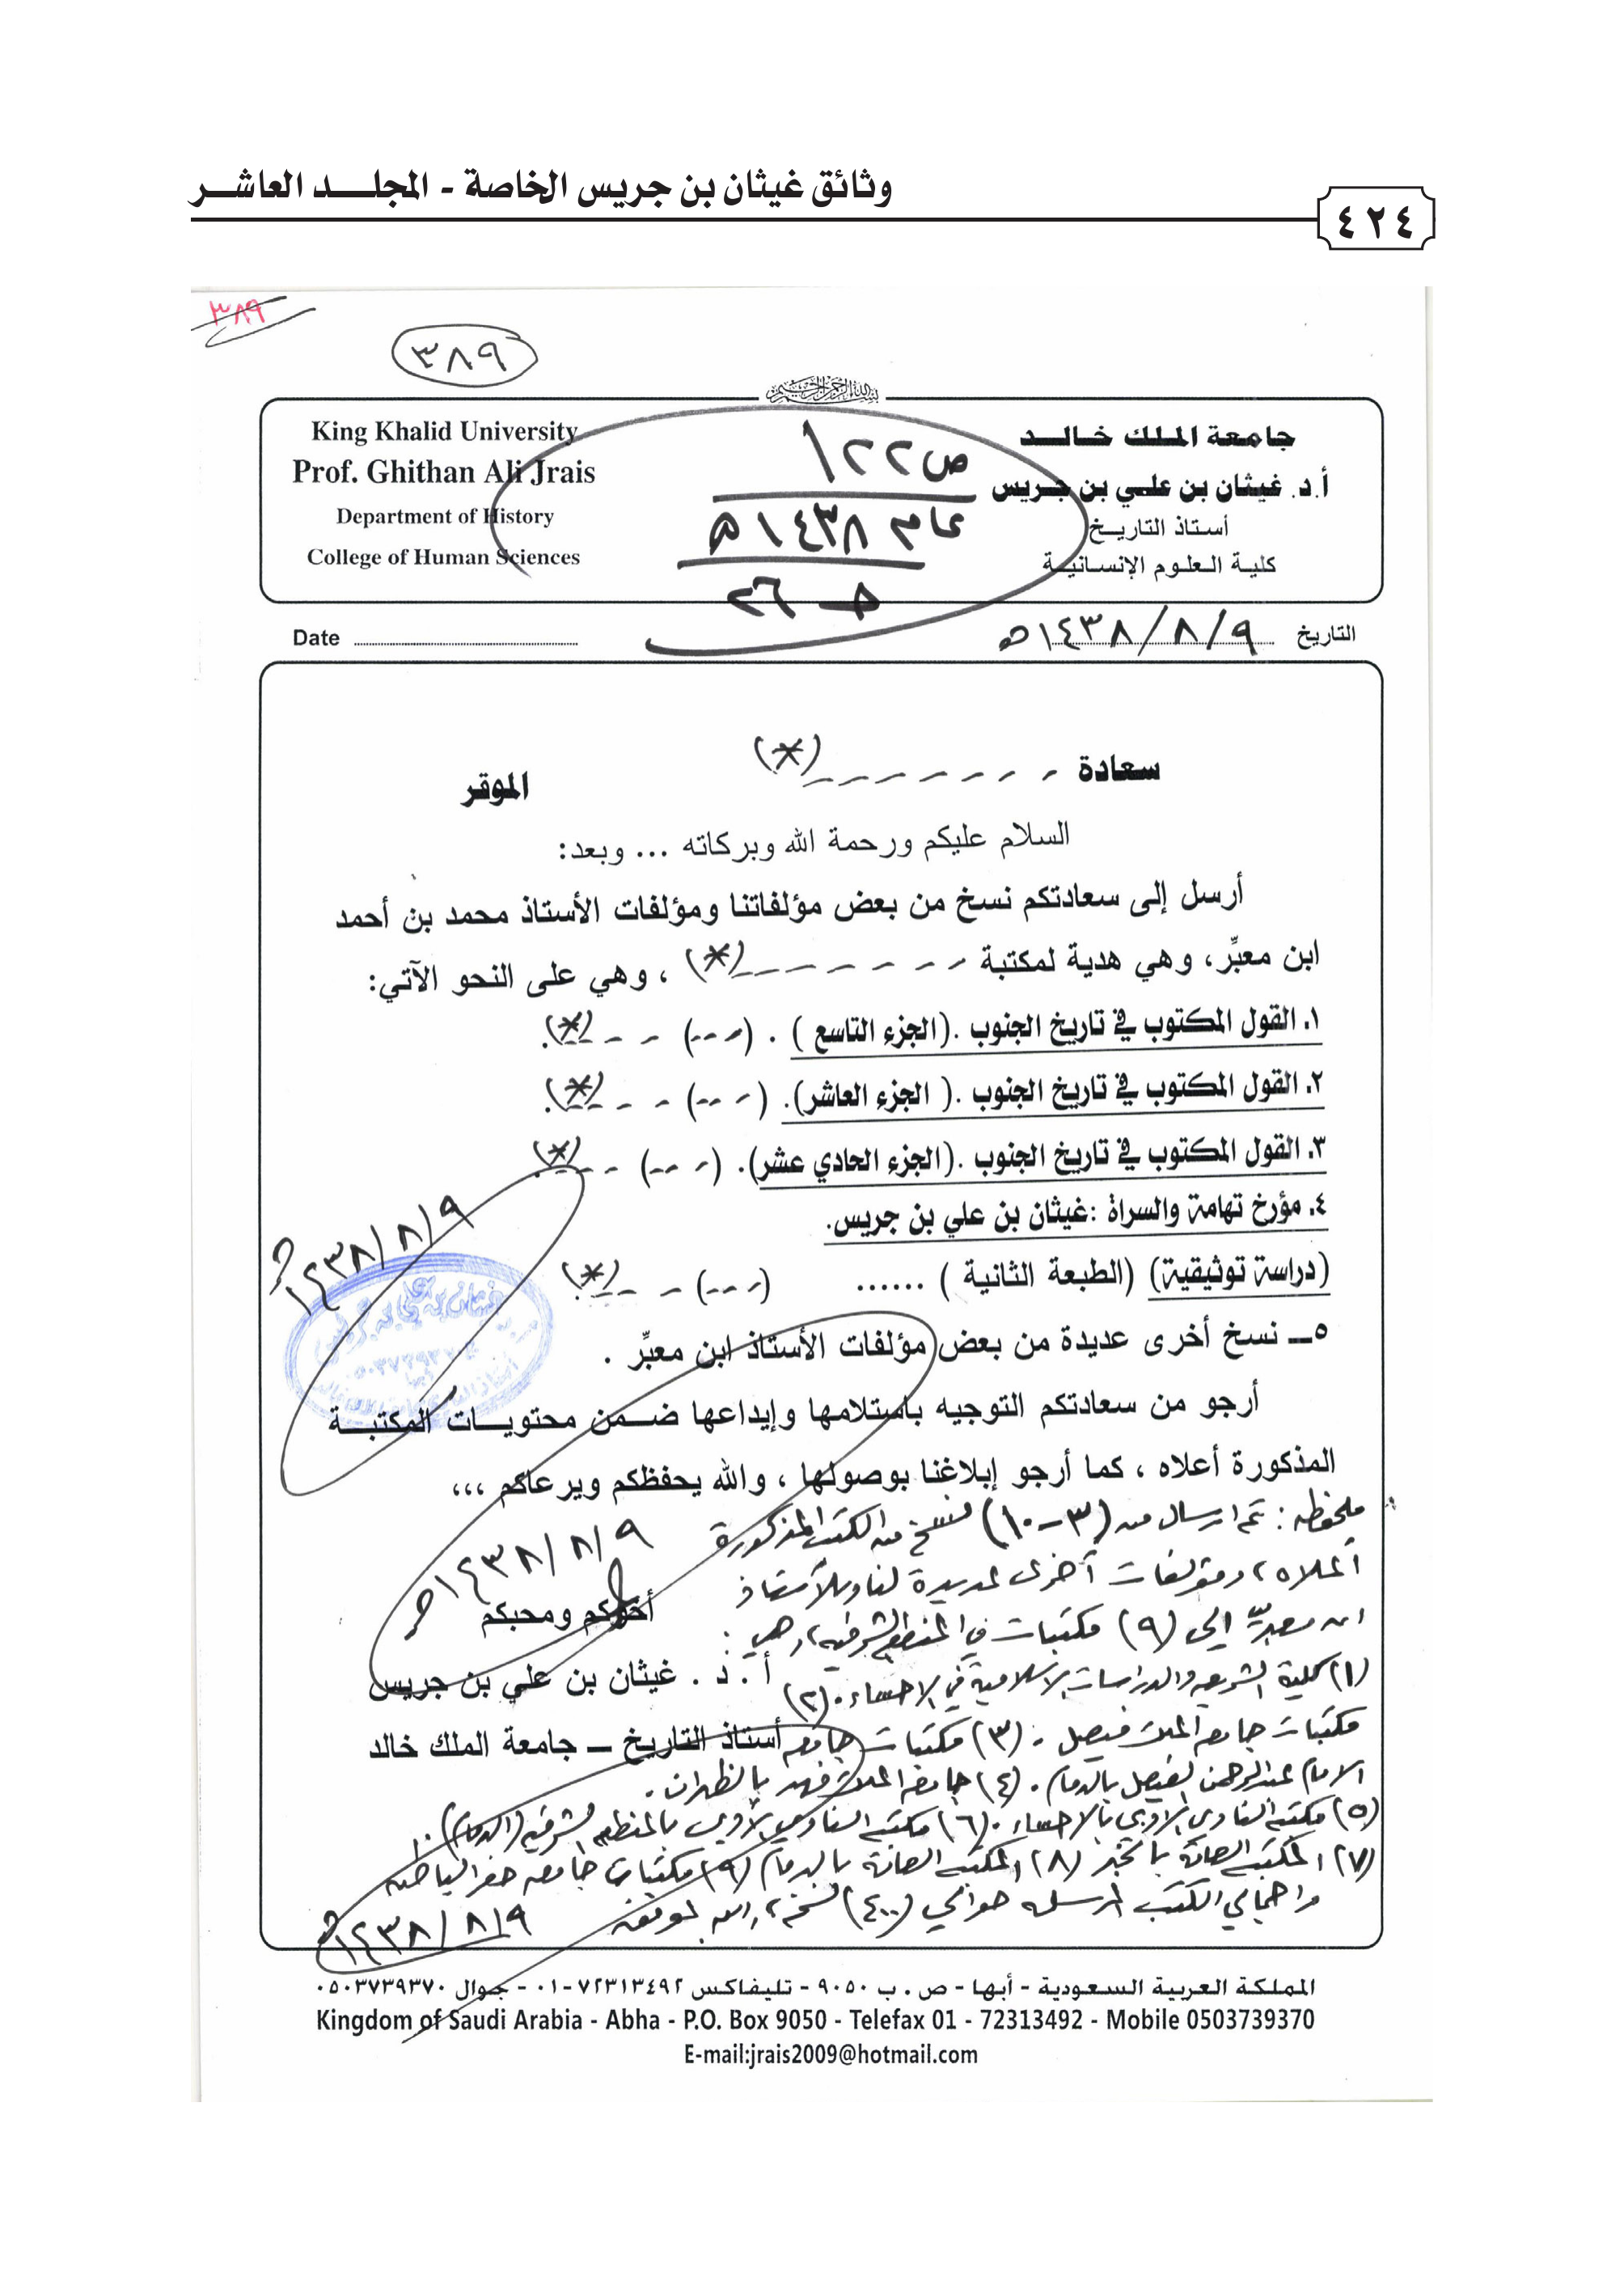 وثائق غيثان بن جريس الخاصة - المجلد العاشر
٤٢٤
٣٨٩
٣٨٩
بسم الله الرحمن الرحيم
جامعة الملك خالد
أ.د. غيثان بن علي بن جريس
أستاذ التاريخ
كلية العلوم الإنسانية
King Khalid University
Prof. Ghithan Ali Jrais
Department of History
College of Human Sciences
ص ١٢٢
عام ١٤٣٨هـ
التاريخ ١٤٣٨/٨/٩هـ
Date
سعادة - - - - - - - (*) الموقر
السلام عليكم ورحمة الله وبركاته ... وبعد:
أرسل إلى سعادتكم نسخ من بعض مؤلفاتنا ومؤلفات الأستاذ محمد بن أحمد
ابن معبِّر، وهي هدية لمكتبة - - - - - - - (*) ، وهي على النحو الآتي:
١. القول المكتوب في تاريخ الجنوب .(الجزء التاسع ) . (- --) - - -- (*).
٢. القول المكتوب في تاريخ الجنوب .( الجزء العاشر). (- --) - - -- (*).
٣. القول المكتوب في تاريخ الجنوب .(الجزء الحادي عشر). (- --) - -- (*).
٤. مؤرخ تهامة والسراة :غيثان بن علي بن جريس.
(دراسة توثيقية) (الطبعة الثانية ) ...... (- --) - -- (*).
٥ـ نسخ أخرى عديدة من بعض مؤلفات الأستاذ ابن معبِّر .
أرجو من سعادتكم التوجيه باستلامها وإيداعها ضمن محتويات المكتبة
المذكورة أعلاه ، كما أرجو إبلاغنا بوصولها ، والله يحفظكم ويرعاكم ،،،
١٤٣٨/٨/٩هـ
ملحوظه : تم ارسال من (٣-١٠) نسخ من الكتب المذكورة
أعلاه ، ومؤلفات أخرى عديدة لنا وللأستاذ
ابن معبر إلى (٩) مكتبات في المنطقة الشرقية ، وهي :
(١) كلية الشريعه والدراسات الاسلامية في الاحساء . (٢)
مكتبات جامعه الملك فيصل . (٣) مكتبات جامعه
الامام عبدالرحمن الفيصل بالدمام . (٤) جامعه الملك فهد بالظهران .
(٥) مكتبه النادي الادبي بالاحساء . (٦) مكتبه النادي الأدبي بالمنطقه الشرقيه (الدمام) .
(٧) المكتبه العامة بالخبر (٨) المكتبه العامة بالدمام (٩) مكتبات جامعه حفر الباطن
واجمالي الكتب المرسله حوالي (٤٠٠) نسخه ، والله الموفق
١٤٣٨/٨/٩هـ
أخوكم ومحبكم
أ . د . غيثان بن علي بن جريس
أستاذ التاريخ ـ جامعة الملك خالد
١٤٣٨/٨/٩هـ
المملكة العربية السعودية - أبها - ص . ب ٩٠٥٠ - تليفاكس ٧٢٣١٣٤٩٢-٠١ - جوال ٠٥٠٣٧٣٩٣٧٠
Kingdom of Saudi Arabia - Abha - P.O. Box 9050 - Telefax 01 - 72313492 - Mobile 0503739370
E-mail:jrais2009@hotmail.com